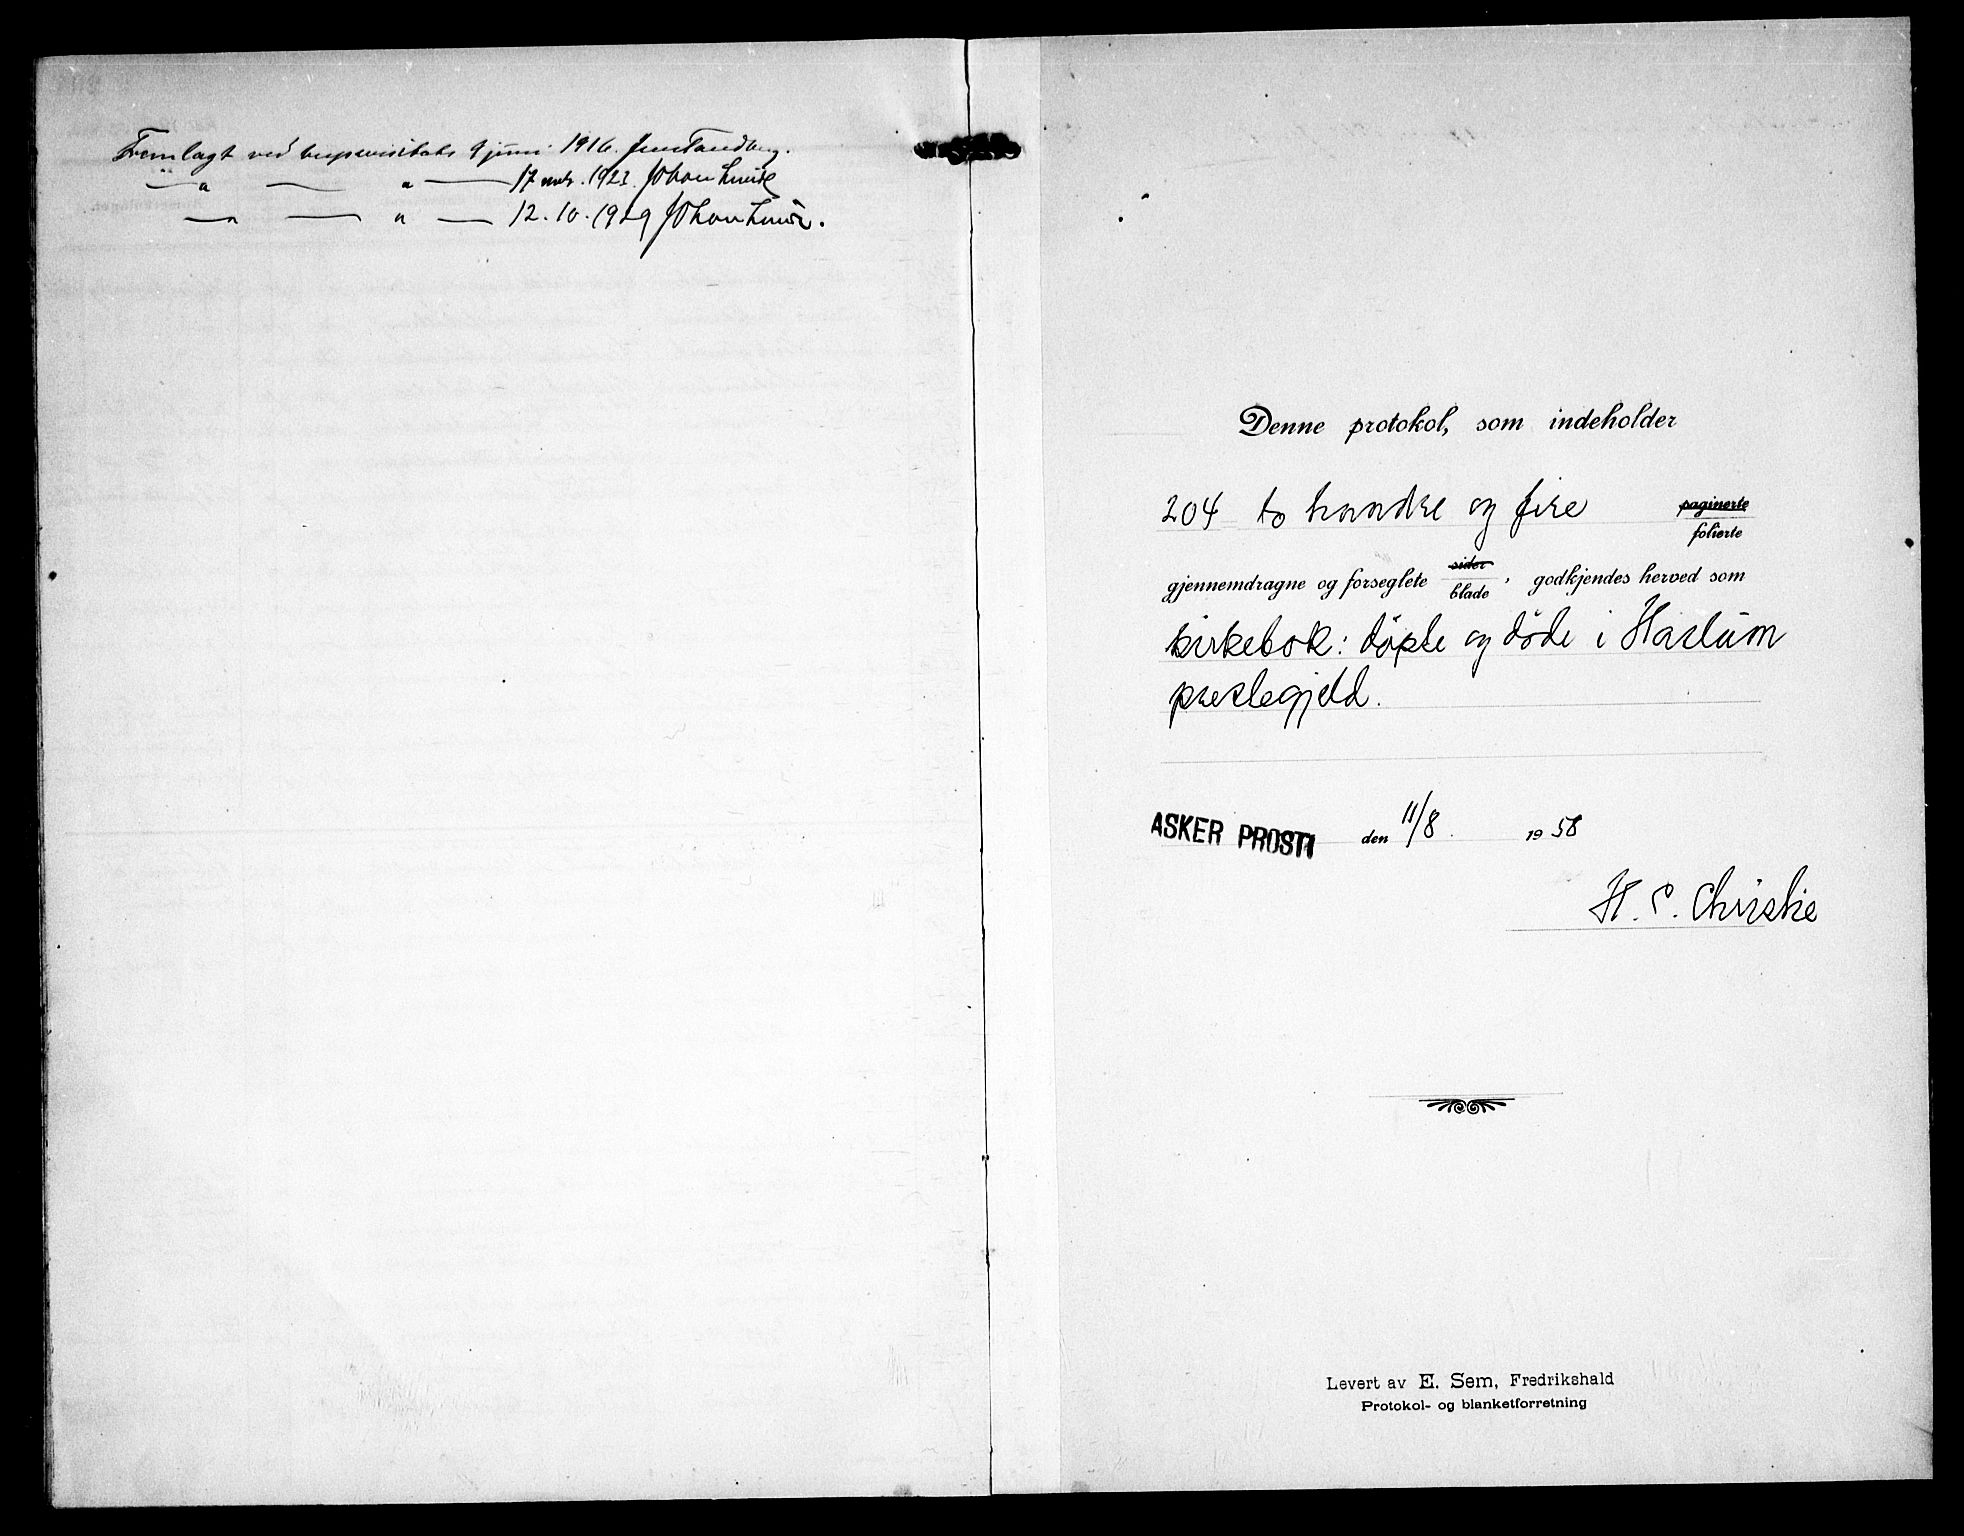 Fremlagt ved bispevisitats 9 juni 1916. Jens Tandberg.
— " — — " — 17 nov. 1923. Johan Lunde
— " — — " — 12. 10. 1929 Johan Lunde.
Denne protokol, som indeholder
204 to hundre og fire paginerte
folierte
gjennemdragne og forseglete sider
blade, godkjendes herved som
kirkebok: døpte og døde i Haslum
prestegjeld.
ASKER PROSTI den 11/8. 1958
H. C. Christie
Levert av E. Sem, Fredrikshald
Protokol- og blanketforretning